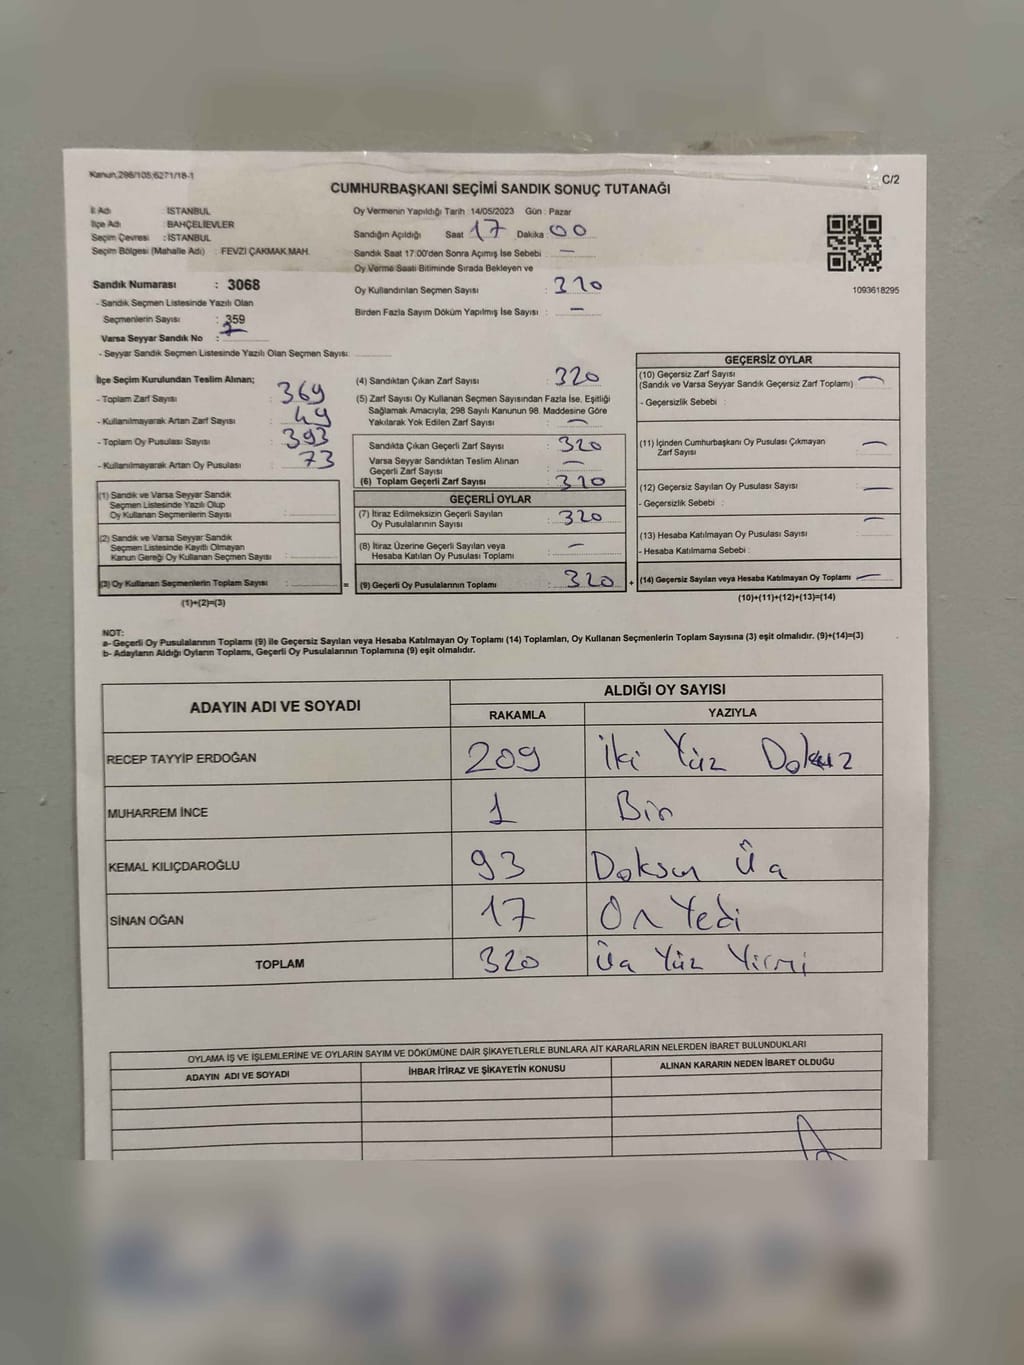 Kanun,298/105;6271/18-1
C/2
CUMHURBAŞKANI SEÇİMİ SANDIK SONUÇ TUTANAĞI
İl Adı : İSTANBUL
İlçe Adı : BAHÇELİEVLER
Seçim Çevresi : İSTANBUL
Seçim Bölgesi (Mahalle Adı) : FEVZİ ÇAKMAK MAH.
Sandık Numarası : 3068
- Sandık Seçmen Listesinde Yazılı Olan
Seçmenlerin Sayısı : 359
Varsa Seyyar Sandık No :
- Seyyar Sandık Seçmen Listesinde Yazılı Olan Seçmen Sayısı:
Oy Vermenin Yapıldığı Tarih 14/05/2023 Gün : Pazar
Sandığın Açıldığı Saat 17 Dakika 00
Sandık Saat 17:00'den Sonra Açılmış İse Sebebi : —
Oy Verme Saati Bitiminde Sırada Bekleyen ve
Oy Kullandırılan Seçmen Sayısı : 320
Birden Fazla Sayım Döküm Yapılmış İse Sayısı : —
1093618295
İlçe Seçim Kurulundan Teslim Alınan;
- Toplam Zarf Sayısı : 369
- Kullanılmayarak Artan Zarf Sayısı : 49
- Toplam Oy Pusulası Sayısı : 393
- Kullanılmayarak Artan Oy Pusulası : 73
(1) Sandık ve Varsa Seyyar Sandık
Seçmen Listesinde Yazılı Olup
Oy Kullanan Seçmenlerin Sayısı :
(2) Sandık ve Varsa Seyyar Sandık
Seçmen Listesinde Kayıtlı Olmayan
Kanun Gereği Oy Kullanan Seçmen Sayısı :
(3) Oy Kullanan Seçmenlerin Toplam Sayısı : =
(1)+(2)=(3)
(4) Sandıktan Çıkan Zarf Sayısı : 320
(5) Zarf Sayısı Oy Kullanan Seçmen Sayısından Fazla İse, Eşitliği
Sağlamak Amacıyla, 298 Sayılı Kanunun 98. Maddesine Göre
Yakılarak Yok Edilen Zarf Sayısı : —
Sandıkta Çıkan Geçerli Zarf Sayısı : 320
Varsa Seyyar Sandıktan Teslim Alınan
Geçerli Zarf Sayısı : —
(6) Toplam Geçerli Zarf Sayısı : 320
GEÇERLİ OYLAR
(7) İtiraz Edilmeksizin Geçerli Sayılan
Oy Pusulalarının Sayısı : 320
(8) İtiraz Üzerine Geçerli Sayılan veya
Hesaba Katılan Oy Pusulası Toplamı : —
(9) Geçerli Oy Pusulalarının Toplamı : 320 +
GEÇERSİZ OYLAR
(10) Geçersiz Zarf Sayısı
(Sandık ve Varsa Seyyar Sandık Geçersiz Zarf Toplamı) : —
- Geçersizlik Sebebi :
(11) İçinden Cumhurbaşkanı Oy Pusulası Çıkmayan
Zarf Sayısı : —
(12) Geçersiz Sayılan Oy Pusulası Sayısı : —
- Geçersizlik Sebebi :
(13) Hesaba Katılmayan Oy Pusulası Sayısı : —
- Hesaba Katılmama Sebebi :
(14) Geçersiz Sayılan veya Hesaba Katılmayan Oy Toplamı : —
(10)+(11)+(12)+(13)=(14)
NOT:
a- Geçerli Oy Pusulalarının Toplamı (9) ile Geçersiz Sayılan veya Hesaba Katılmayan Oy Toplamı (14) Toplamları, Oy Kullanan Seçmenlerin Toplam Sayısına (3) eşit olmalıdır. (9)+(14)=(3)
b- Adayların Aldığı Oyların Toplamı, Geçerli Oy Pusulalarının Toplamına (9) eşit olmalıdır.
ADAYIN ADI VE SOYADI
ALDIĞI OY SAYISI
RAKAMLA YAZIYLA
RECEP TAYYİP ERDOĞAN 209 İki Yüz Dokuz
MUHARREM İNCE 1 Bir
KEMAL KILIÇDAROĞLU 93 Doksan Üç
SİNAN OĞAN 17 On Yedi
TOPLAM 320 Üç Yüz Yirmi
OYLAMA İŞ VE İŞLEMLERİNE VE OYLARIN SAYIM VE DÖKÜMÜNE DAİR ŞİKAYETLERLE BUNLARA AİT KARARLARIN NELERDEN İBARET BULUNDUKLARI
ADAYIN ADI VE SOYADI İHBAR İTİRAZ VE ŞİKAYETİN KONUSU ALINAN KARARIN NEDEN İBARET OLDUĞU